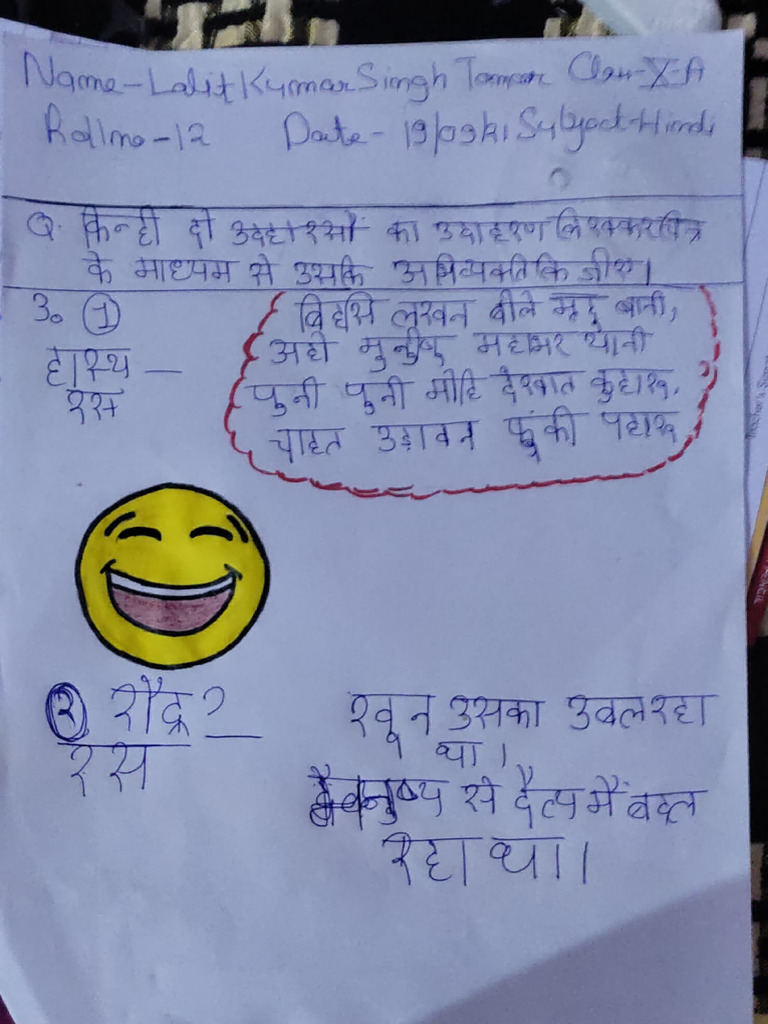 Name-Lalit Kumar Singh Tomar Class-X-A
Roll no-12 Date- 19/09/21 Subject-Hindi
Q. किन्ही दो का उदाहरण लिखकर चित्र
के माध्यम से उसकि अभिव्यक्ति कि जीए।
उ० ①
हास्य —
रस
बिहसि लखन बोले मृदु बानी,
अहो मुनीषु महाभर यानी
पुनी पुनी मोहि देखात कुहारू,
चाहत उड़ावन फूंकी पहारू
② रौद्र ?—
रस
खून उसका उबल रहा
था।
से दैत्य मैं बदल
रहा था।